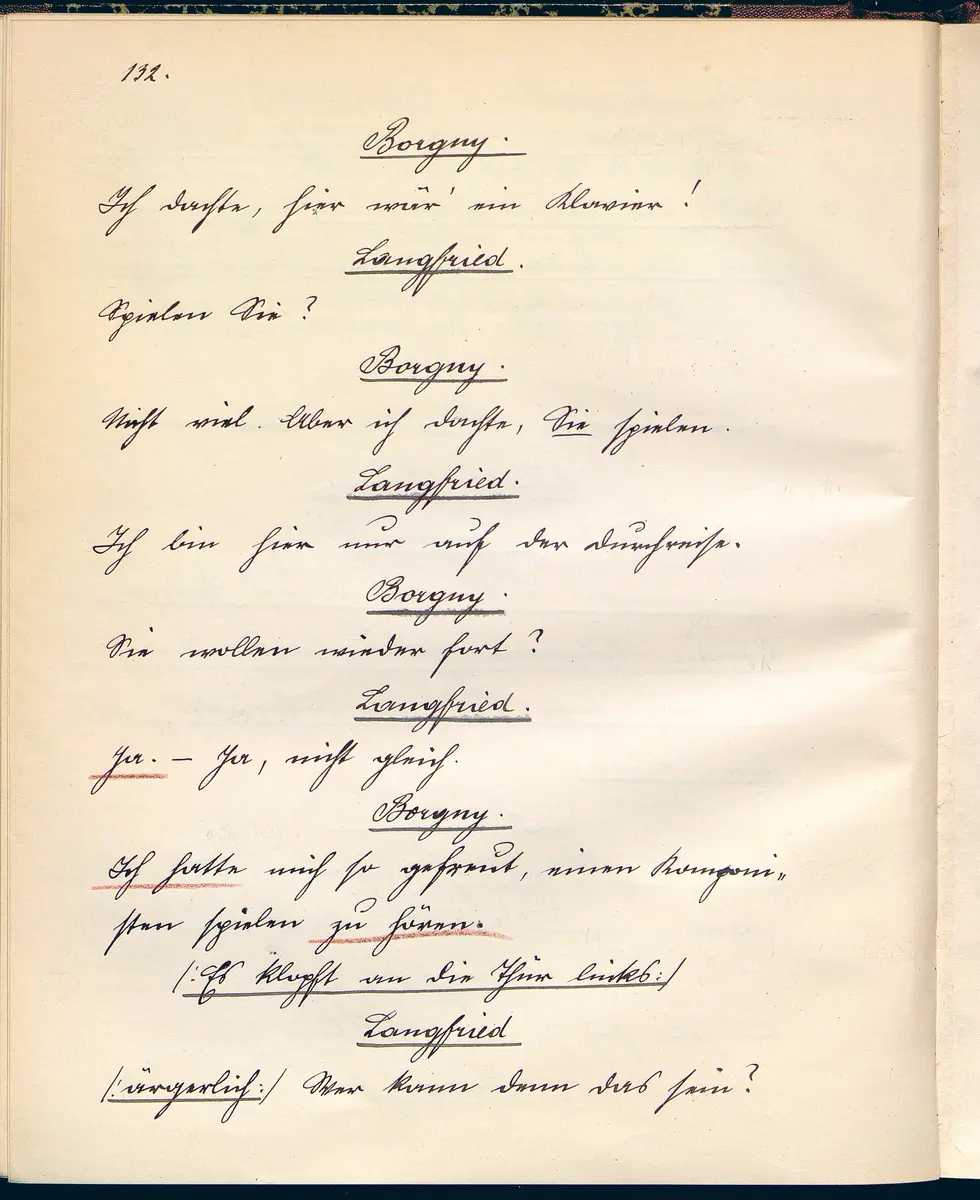 132.
Borgny.
Ich dachte, hier wär' ein Klavier!
Langfried.
Spielen Sie?
Borgny.
Nicht viel. Aber ich dachte, Sie spielen.
Langfried.
Ich bin hier nur auf der Durchreise.
Borgny.
Sie wollen wieder fort?
Langfried.
Ja. – Ja, nicht gleich.
Borgny.
Ich hatte mich so gefreut, einen Komponi„
sten spielen zu hören.
/: Es klopft an die Thür links: /
Langfried
/: ärgerlich: / Wer kann denn das sein?